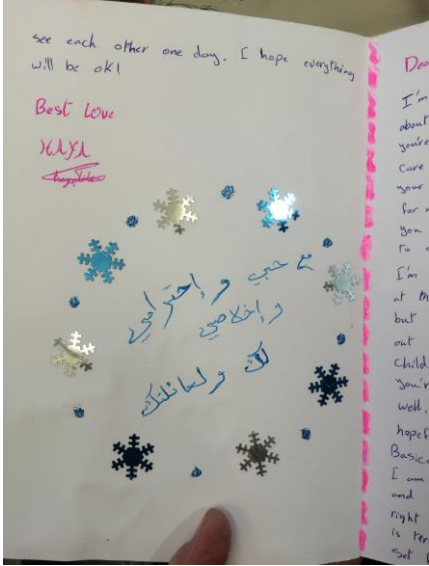 see each other one day. I hope everything
will be ok!
Best Love
HAYA
مع حبي و إحترامي
و إخلاصي
لك و لعائلتك
Dea
I'm
about
you're
Care
your
for
you
to
I'm
at th
but
out
Child
you'r
well.
hopef
Basic
I am
and
right
is ter
set